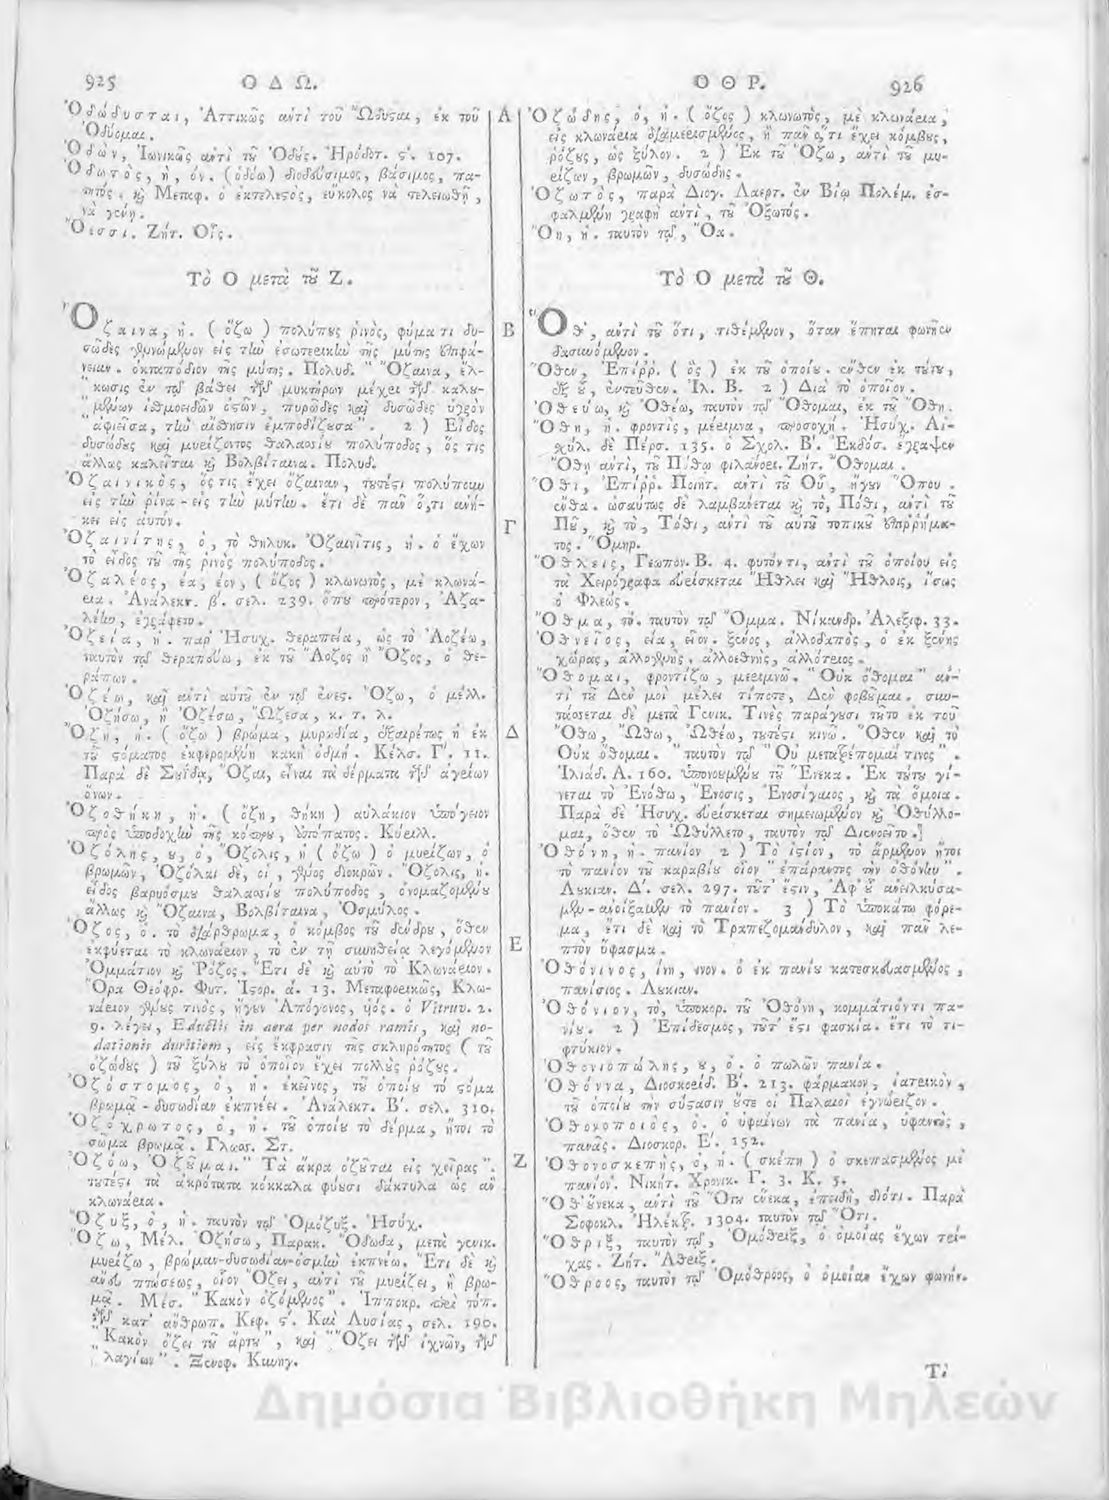 925 Ο Δ Ω.
Ὀδώδυσται, Ἀττικῶς αὐτὶ τοῦ Ὤδυσαι, ἐκ τοῦ
Ὀδύομαι.
Ὀδών, Ἰωνικῶς αὐτὶ τοῦ Ὀδύς. Ἡρόδοτ. ς΄. 107.
Ὀδωτὸς, ἡ, όν. (ὁδόω) διοδεύσιμος, βάσιμος, πα-
τητός. καὶ Μεταφ. ὁ ἐκτελεστὸς, εὔκολος νὰ τελειωθῇ,
νὰ γένῃ.
Ὀεσσι. Ζήτ. Οἷς.
Τὸ Ο μετὰ τοῦ Ζ.
Ὄζαινα, ἡ. ( ὄζω ) πολύπους ῥινὸς, φύμα τι δυ-
σῶδες γενόμενον εἰς τὴν ἐσωτερικὴν τῆς μύτης ἐπιφά-
νειαν. ὀκταπόδιον τῆς μύτης. Πολυδ. " Ὄζαινα, ἕλ-
κωσις ἐν τῷ βάθει τῶν μυκτήρων μέχρι τῶν καλου-
μένων ἰθμοειδῶν ὀστῶν, πυρῶδες καὶ δυσῶδες ὑγρὸν
ἀφιεῖσα, τὴν αἴσθησιν ἐμποδίζουσα". 2 ) Εἶδος
δυσώδους καὶ μυρίζοντος θαλασσίου πολύποδος, ὅς τις
ἄλλως καλεῖται καὶ Βολβίταινα. Πολυδ.
Ὀζαινικός, ὅς τις ἔχει ὄζαιναν, τουτέστι πολύπουν
εἰς τὴν ῥῖνα - εἰς τὴν μύτην. ἔτι δὲ πᾶν ὅ,τι ἀνή-
κει εἰς αὐτόν.
Ὀζαινίτης, ὁ, τὸ θηλυκ. Ὀζαινῖτις, ἡ. ὁ ἔχων
τὸ εἶδος τοῦ τῆς ῥινὸς πολύποδος.
Ὀζαλέος, έα, έον, ( ὄζος ) κλωνωτὸς, μὲ κλωνά-
ρια. Ἀνάλεκτ. β΄. σελ. 239. ὅπου πρότερον, Ἀζα-
λέην, ἐγράφετο.
Ὀζεία, ἡ. παρ' Ἡσυχ. θεραπεία, ὡς τὸ Ἀοζέω,
ταυτὸν τῷ θεραπεύω, ἐκ τοῦ Ἄοζος ἢ Ὄζος, ὁ θε-
ράπων.
Ὀζέω, καὶ αὐτὶ αὐτοῦ ἐν τῷ ἐνες. Ὄζω, ὁ μέλλ.
Ὀζήσω, ἢ Ὀζέσω, Ὤζεσα, κ. τ. λ.
Ὄζη, ἡ. ( ὄζω ) βρῶμα, μυρωδία, ἐξαιρέτως ἡ ἐκ
τοῦ στόματος ἐκφερομένη κακὴ ὀσμή. Κέλσ. Γ΄. 11.
Παρὰ δὲ Σουΐδᾳ, Ὄζαι, εἶναι τὰ δέρματα τῶν ἀγρίων
ὄνων.
Ὀζοθήκη, ἡ. ( ὄζη, θήκη ) αὐλάκιον ὑπόγειον
πρὸς ὑποδοχὴν τῆς κόπρου, ἀπόπατος. Κύριλλ.
Ὀζόλης, ου, ὁ, Ὄζολις, ἡ ( ὄζω ) ὁ μυρίζων, ὁ
βρωμῶν, Ὀζόλαι δὲ, οἱ, γένος Λοκρῶν. Ὄζολις, ἡ.
εἶδος βαρυόσμου θαλασσίου πολύποδος, ὀνομαζομένου
ἄλλως καὶ Ὄζαινα, Βολβίταινα, Ὀσμύλος.
Ὄζος, ὁ. τὸ διάρθρωμα, ὁ κόμβος τοῦ δένδρου, ὅθεν
ἐκφύεται τὸ κλωνάριον, τὸ ἐν τῇ συνηθείᾳ λεγόμενον
Ὀμμάτιον καὶ Ῥόζος. Ἔτι δὲ καὶ αὐτὸ τὸ Κλωνάριον.
Ὅρα Θεόφρ. Φυτ. Ἱστορ. ά. 13. Μεταφορικῶς, Κλω-
νάριον γένους τινὸς, ἤγουν Ἀπόγονος, υἱός. ὁ Vitruv. 2.
9. λέγει, Eductis in aera per nodos ramis, καὶ no-
dationis duritiem, εἰς ἔκφρασιν τῆς σκληρότητος ( τοῦ
ὀζώδους ) τοῦ ξύλου τὸ ὁποῖον ἔχει πολλοὺς ῥόζους.
Ὀζόστομος, ὁ, ἡ. ἐκεῖνος, τοῦ ὁποίου τὸ στόμα
βρωμᾷ - δυσωδίαν ἐκπνέει. Ἀνάλεκτ. Β΄. σελ. 310.
Ὀζόχρωτος, ὁ, ἡ. τοῦ ὁποίου τὸ δέρμα, ἤτοι τὸ
σῶμα βρωμᾷ. Γλωσ. Στ.
Ὀζόω, Ὀζοῦμαι." Τὰ ἄκρα ὀζοῦται εἰς χεῖρας".
τουτέστι τὰ ἀκρότατα κόκκαλα φύουσι δάκτυλα ὡς ἂν
κλωνάρια.
Ὄζυξ, ὁ, ἡ. ταυτὸν τῷ Ὁμόζυξ. Ἡσύχ.
Ὄζω, Μέλ. Ὀζήσω, Παρακ. Ὄδωδα, μετὰ γενικ.
μυρίζω, βρώμαν-δυσωδίαν-ὀσμὴν ἐκπνέω. Ἔτι δὲ καὶ
ἄνευ πτώσεως, οἷον Ὄζει, αὐτὶ τοῦ μυρίζει, ἢ βρω-
μᾷ. Μέσ. " Κακὸν ὀζόμενος". Ἱπποκρ. περὶ τόπ.
τῶν κατ' ἄνθρωπ. Κεφ. ς΄. Καὶ Λυσίας, σελ. 190.
" Κακὸν ὄζει τοῦ ἄρτου", καὶ " Ὄζει τῶν ἰχνῶν, τῶν
λαγίων". Ξενοφ. Κυνηγ.
Α
Β
Γ
Δ
Ε
Ζ
Ο Θ Ρ. 926
Ὀζώδης, ὁ, ἡ. ( ὄζος ) κλωνωτὸς, μὲ κλωνάρια,
εἰς κλωνάρια διαμερισμένος, ἢ πᾶν ὅ,τι ἔχει κόμβους,
ῥόζους, ὡς ξύλον. 2 ) Ἐκ τοῦ Ὄζω, αὐτὶ τοῦ μυ-
ρίζων, βρωμῶν, δυσώδης.
Ὀζωτὸς, παρὰ Διογ. Λαερτ. ἐν Βίῳ Πολέμ. ἐσ-
φαλμένη γραφὴ αὐτὶ, τοῦ Ὀξωτός.
Ὄη, ἡ. ταυτὸν τῷ, Ὄα.
Τὸ Ο μετὰ τοῦ Θ.
Ὅθ', αὐτὶ τοῦ ὅτι, τιθέμενον, ὅταν ἕπηται φωνῆεν
δασυνόμενον.
Ὅθεν, Ἐπίρρ. ( ὃς ) ἐκ τοῦ ὁποίου. ἔνθεν ἐκ τούτου,
ἐξ οὗ, ἐντεῦθεν. Ἰλ. Β. 2 ) Διὰ τὸ ὁποῖον.
Ὀθεύω, καὶ Ὀθέω, ταυτὸν τῷ Ὄθομαι, ἐκ τοῦ Ὄθη.
Ὄθη, ἡ. φροντὶς, μέριμνα, προσοχή. Ἡσύχ. Αἰ-
σχύλ. δὲ Πέρσ. 135. ὁ Σχολ. Β΄. Ἐκδόσ. ἔγραψεν
Ὄθη αὐτὶ, τοῦ Πόθῳ φιλάνορι. Ζήτ. Ὄθομαι.
Ὅθι, Ἐπίρρ. Ποιητ. αὐτὶ τοῦ Οὗ, ἤγουν Ὅπου.
ἔνθα. ὡσαύτως δὲ λαμβάνεται καὶ τὸ, Πόθι, αὐτὶ τοῦ
Ποῦ, καὶ τὸ, Τόθι, αὐτὶ τοῦ αὐτοῦ τοπικοῦ ἐπιρρήμα-
τος. Ὁμηρ.
Ὄθλεις, Γεωπόν. Β. 4. φυτόν τι, αὐτὶ τοῦ ὁποίου εἰς
τὰ Χειρόγραφα εὑρίσκεται Ἤθλει καὶ Ἤθλοις, ἴσως
ὁ Φλεώς.
Ὄθμα, τό. ταυτὸν τῷ Ὄμμα. Νίκανδρ. Ἀλεξιφ. 33.
Ὀθνεῖος, εία, εῖον. ξένος, ἀλλοδαπὸς, ὁ ἐκ ξένης
χώρας, ἀλλογενής. ἀλλοεθνὴς, ἀλλότριος.
Ὄθομαι, φροντίζω, μεριμνῶ. " Οὐκ ὄθομαι" αὐ-
τὶ τοῦ Δέν μοι μέλει τίποτε, Δὲν φοβοῦμαι. συν-
τάσσεται δὲ μετὰ Γενικ. Τινὲς παράγουσι τοῦτο ἐκ τοῦ
Ὄθω, Ὤθω, Ὠθέω, τουτέστι κινῶ. Ὅθεν καὶ τὸ
Οὐκ ὄθομαι. " ταυτὸν τῷ " Οὐ μετατρέπομαί τινος".
Ἰλιάδ. Α. 160. ὑπονοουμένου τοῦ Ἕνεκα. Ἐκ τούτου γί-
νεται τὸ Ἐνόθω, Ἔνοσις, Ἐνοσίγαιος, καὶ τὰ ὅμοια.
Παρὰ δὲ Ἡσυχ. εὑρίσκεται σημειωμένον καὶ Ὀθύλλο-
μαι, ὅθεν τὸ Ὠθύλλετο, ταυτὸν τῷ Διενοεῖτο.]
Ὀθόνη, ἡ. πανίον 2 ) Τὸ ἱστίον, τὸ ἄρμενον ἤτοι
τὸ πανίον τοῦ καραβίου οἷον " ἐπάραντες τὴν ὀθόνην".
Λυκιαν. Δ΄. σελ. 297. τουτ' ἔστιν, Ἀφ' οὗ ἀνειλκύσα-
μεν - ἀνοίξαμεν τὸ πανίον. 3 ) Τὸ ὑποκάτω φόρε-
μα, ἔτι δὲ καὶ τὸ Τραπεζομάνδυλον, καὶ πᾶν λε-
πτὸν ὕφασμα.
Ὀθόνινος, ίνη, ινον. ὁ ἐκ πανίου κατεσκευασμένος,
πανίσιος. Λυκιαν.
Ὀθόνιον, τὸ, ὑποκορ. τοῦ Ὀθόνη, κομμάτιόν τι πα-
νίου. 2 ) Ἐπίδεσμος, τουτ' ἔστι φασκία. ἔτι τὸ τι-
φτίκιον.
Ὀθονιοπώλης, ου, ὁ. ὁ πωλῶν πανία.
Ὀθόννα, Διοσκορίδ. Β΄. 213. φάρμακον, ἰατρικὸν,
τοῦ ὁποίου τὴν σύστασιν οὔτε οἱ Παλαιοὶ ἐγνώριζον.
Ὀθονοποιὸς, ὁ. ὁ ὑφαίνων τὰ πανία, ὑφαντὴς,
πανᾶς. Διοσκορ. Ε΄. 152.
Ὀθονοσκεπὴς, ὁ, ἡ. ( σκέπη ) ὁ σκεπασμένος μὲ
πανίον. Νικήτ. Χρονικ. Γ. 3. Κ. 5.
Ὀθούνεκα, αὐτὶ τοῦ Ὅτου ἕνεκα, ἐπειδὴ, διότι. Παρὰ
Σοφοκλ. Ἠλέκτρ. 1304. ταυτὸν τῷ Ὅτι.
Ὄθριξ, ταυτὸν τῷ, Ὁμόθριξ, ὁ ὁμοίας ἔχων τρί-
χας. Ζήτ. Ἄθριξ.
Ὄθροος, ταυτὸν τῷ Ὁμόθροος, ὁ ὁμοίαν ἔχων φωνήν.
Τὸ
Δημόσια Βιβλιοθήκη Μηλεών